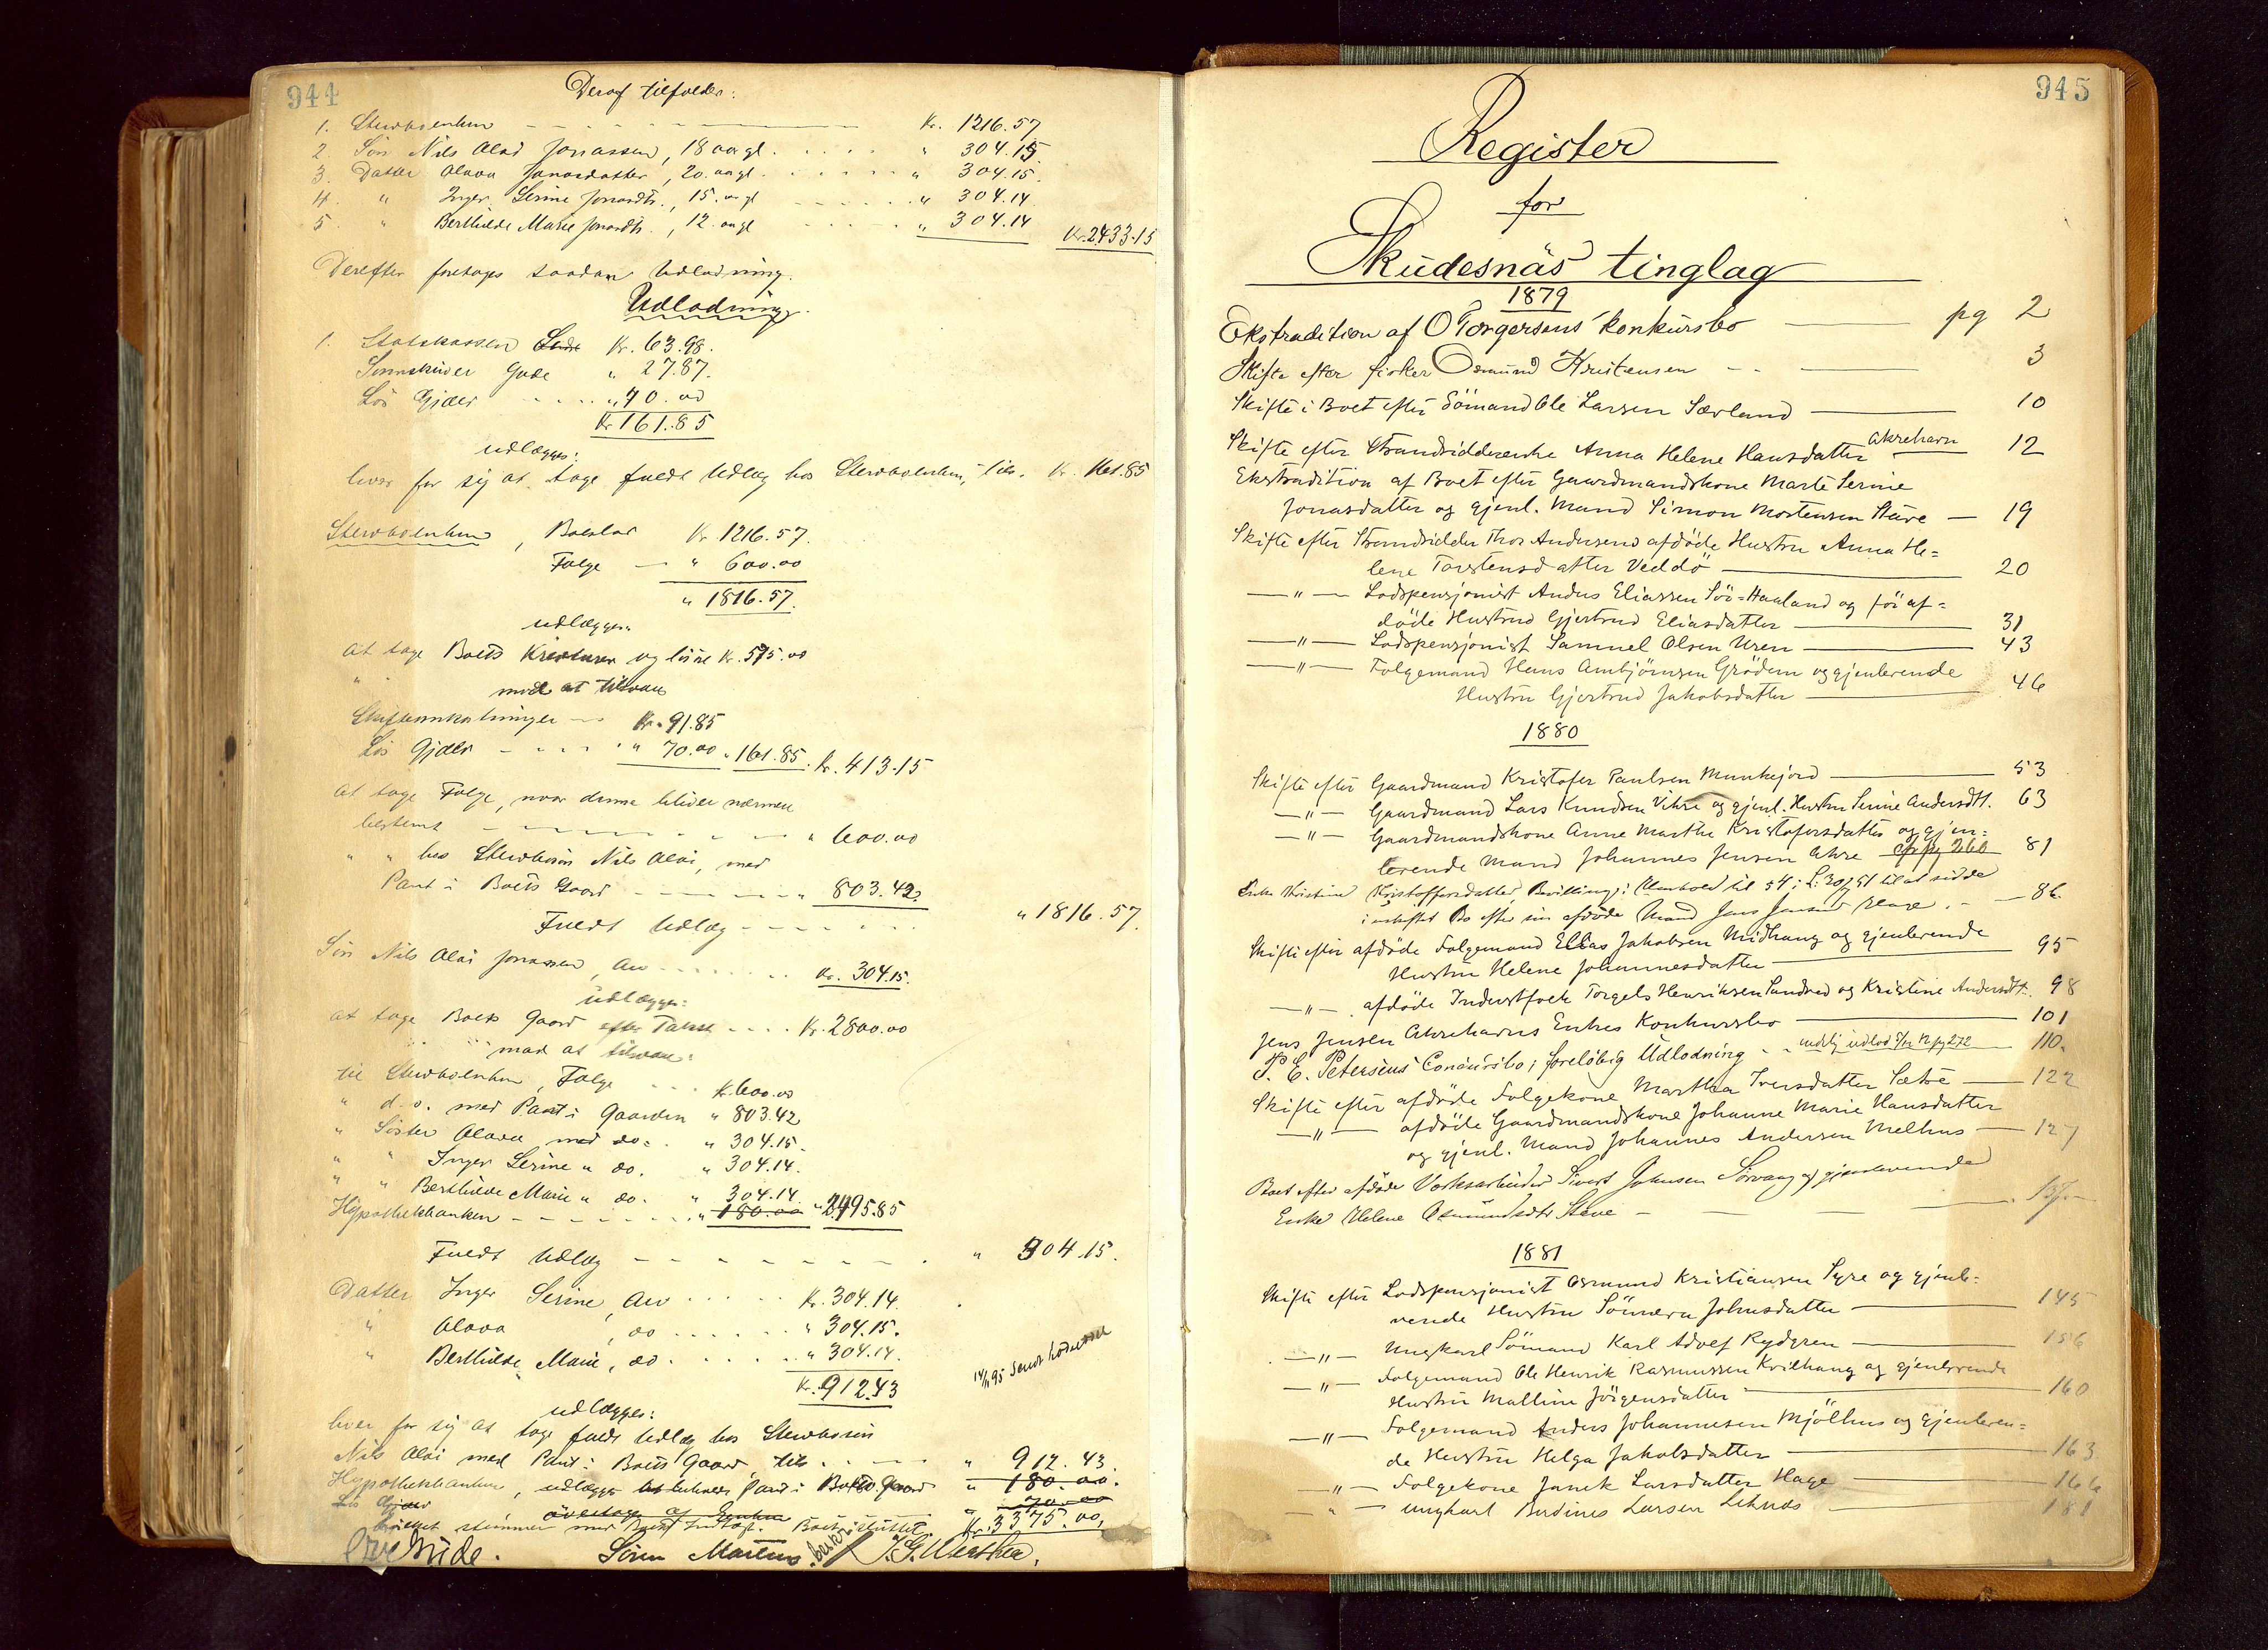 944
Deraf tilfalder:
1. Sterboenken Kr. 1216.57
2. Søn Nils Olai Jonassen, 18 aar gl. " 304.15
3. Datter Olava Jonasdatter, 20. aar gl. " 304.15.
4. " Inger Serine Jonasdtr., 15. aar gl " 304.14
5. " Berthilde Marie Jonasdtr., 12. aar gl " 304.14 Kr. 2433.15
Derefter foretages saadan Udlodning.
Udlodning.
1. Statskassen Kr. 63.98.
Sorenskriver Gude " 27.87.
Løs Gjæld " 70.00
Kr 161.85
udlægges:
hver for sig at tage fuldt Udlæg hos Sterboenken, tils. Kr. 161.85
Sterboenken, Boeslod Kr 1216.57.
Følge " 600.00
" 1816.57.
udlægges:
at tage Boets Kreaturer og løsøre Kr. 575.00
mod at tilsvare
Skifteomkostninger Kr. 91.85
Løs Gjæld " 70.00 " 161.85. Kr. 413.15
at tage Følge, naar denne bliver nærmere
bestemt " 600.00
" " hos Sterbosøn Nils Olai, med
Pant i Boets Gaard " 803.42
Fuldt Udlæg " 1816.57.
Søn Nils Olai Jonassen, Arv Kr. 304.15.
udlægges:
at tage Boets Gaard efter Takst Kr. 2800.00
mod at tilsvare:
til Sterboenken, Følge Kr. 600.00
" d.o. med Pant i Gaarden " 803.42
" Søster Olava med do. " 304.15.
" " Inger Serine " do. " 304.14.
" " Berthilde Marie " do. " 304.14.
Hypothekbanken " 180.00 " 2495.85
Fuldt Udlæg " 304.15.
Datter Inger Serine, Arv Kr. 304.14.
" Olava, do " 304.15.
" Berthilde Marie, do. " 304.14.
Kr. 912.43
udlægges:
hver for sig at tage fuldt Udlæg hos Sterbosøn
Nils Olai med Pant i Boets Gaard, tils. " 912.43.
Hypothekbanken, udlægges Pant i Boets Gaard " 180.00.
Løs Gjæld overtages af Enken " 70.00
hvilket stemmer med Boets Indtægt. Boet sluttet. Kr. 3375.00,
Gude. Søren Martens J. G. Werther.
945
Register
for
Skudesnäs tinglag
1879
Ekstradition af O Torgersens konkursbo pg 2
Skifte efter fisker Osmund Kristensen 3
Skifte i Boet efter Sömand Ole Larsen Sævland 10
Skifte efter Strandsidderenke Anna Helene Hansdatter Akrehavn 12
Ekstradition af Boet efter Gaardmandskone Marte Serine
Jonasdatter og gjenl. Mand Simon Mortensen Stave 19
Skifte efter Strandsidder Thor Andersens afdöde Hustru Anna He=
lene Torstensdatter Veddö 20
" Lodspensjonist Anders Eliassen Sör=Haaland og för af=
döde Hustru Gjertrud Eliasdatter 31
" Lodspensjonist Samuel Olsen Uren 43
" Folgemand Hans Ambjörnsen Grödem og gjenlevende
Hustru Gjertrud Jakobsdatter 46
1880
Skifte efter Gaardmand Kristofer Paulsen Munkejord 53
" Gaardmand Lars Knudsen Vikre og gjenl. Hustru Serine Andersdtt. 63
" Gaardmandskone Anne Marthe Kristofersdatter og gjen=
levende Mand Johannes Jensen Akre cfr pg 260 81
Enke Kristine Kristoffersdatter, Bevilling i Henhold til 54 i L: 30/7 51 til at sidde
i uskiftet Bo efter sin afdöde Mand Jens Jensen 86.
Skifte efter afdöde Folgemand Elias Jakobsen Midhaug og gjenlevende
Hustru Helene Johannesdatter 95
" afdöde Inderstfolk Torgels Henriksen Sandved og Kristine Andersdtt. 98
Jens Jensen Akrehavns Enkes Konkursbo 101
P. E. Petersens Concursbo; foreløbig Udlodning 110.
Skifte efter afdöde Folgekone Martha Iversdatter Sætre 122
" afdöde Gaardmandskone Johanne Marie Hansdatter
og gjenl. Mand Johannes Andersen Melhus 127
Boet efter afdöde Værksarbeider Sivert Johnsen Sörvaag og gjenlevende
Enke Helene Osmundsdtr Stave 137
1881
Skifte efter Lodspensjonist Osmund Kristiansen Syre og gjenle=
vende Hustru Sönneva Johnsdatter 145
" Ungkarl Sömand Karl Adolf Rydgren 156
" Folgemand Ole Henrik Rasmussen Kvilhaug og gjenlevende
Hustru Malline Jörgensdatter 160
" Folgemand Anders Johannesen Mjölhus og gjenleven=
de Hustru Helga Jakobsdatter 163
" Folgekone Janik Larsdatter Hage 166
" ungkarl Berdines Larsen Liknäs 181